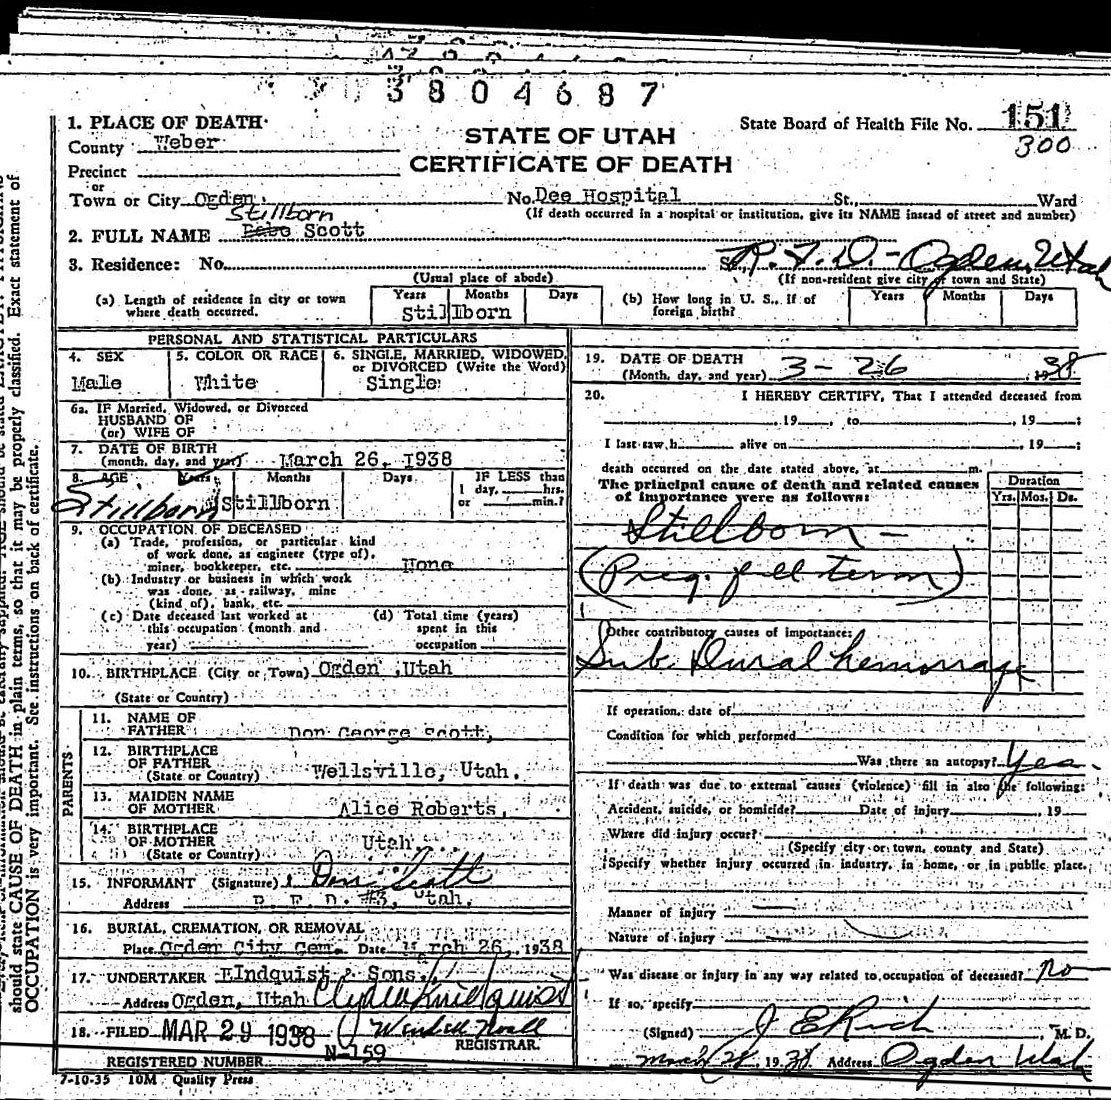 3804687
1. PLACE OF DEATH
STATE OF UTAH
CERTIFICATE OF DEATH
State Board of Health File No. 151
300
County Weber
Precinct
or
Town or City Ogden No. Dee Hospital St., Ward
(If death occurred in a hospital or institution, give its NAME instead of street and number)
Stillborn
2. FULL NAME Scott
3. Residence: No. R.F.D.-Ogden, Utah
(Usual place of abode) (If non-resident give city or town and State)
(a) Length of residence in city or town where death occurred. Years Months Days
Stillborn
(b) How long in U. S., if of foreign birth? Years Months Days
PERSONAL AND STATISTICAL PARTICULARS
4. SEX
Male
5. COLOR OR RACE
White
6. SINGLE, MARRIED, WIDOWED,
or DIVORCED (Write the Word)
Single
6a. IF Married, Widowed, or Divorced
HUSBAND OF
(or) WIFE OF
7. DATE OF BIRTH
(month, day, and year) March 26, 1938
8. AGE Years Months Days IF LESS than
1 day, hrs.
or min.?
Stillborn Stillborn
9. OCCUPATION OF DECEASED
(a) Trade, profession, or particular kind
of work done, as engineer (type of),
miner, bookkeeper, etc. None
(b) Industry or business in which work
was done, as railway, mine
(kind of), bank, etc.
(c) Date deceased last worked at
this occupation (month and
year)
(d) Total time (years)
spent in this
occupation
10. BIRTHPLACE (City or Town) Ogden ,Utah
(State or Country)
PARENTS
11. NAME OF
FATHER Don George Scott,
12. BIRTHPLACE
OF FATHER
(State or Country) Wellsville, Utah.
13. MAIDEN NAME
OF MOTHER Alice Roberts,
14. BIRTHPLACE
OF MOTHER Utah.
(State or Country)
15. INFORMANT (Signature) Don Scott
Address R. F. D. #3, Utah.
16. BURIAL, CREMATION, OR REMOVAL
Place Ogden City Cem. Date March 26, 1938
17. UNDERTAKER Lindquist & Sons.
Address Ogden, Utah
18. FILED MAR 29 1938
REGISTRAR.
REGISTERED NUMBER N-159
7-10-35 10M Quality Press
19. DATE OF DEATH
(Month, day, and year) 3-26, 1938
20. I HEREBY CERTIFY, That I attended deceased from
, 19 , to , 19 ;
I last saw h alive on , 19 ;
death occurred on the date stated above, at m.
The principal cause of death and related causes
of importance were as follows:
Duration
Yrs. Mos. Ds.
Stillborn -
(Preg. full term)
Other contributory causes of importance:
Sub Dural hemorrage
If operation, date of
Condition for which performed
Was there an autopsy? Yes.
If death was due to external causes (violence) fill in also the following:
Accident, suicide, or homicide? Date of injury , 19
Where did injury occur?
(Specify city or town, county and State)
Specify whether injury occurred in industry, in home, or in public place.
Manner of injury
Nature of injury
Was disease or injury in any way related to occupation of deceased? No
If so, specify
(Signed) J E Rich , M. D.
, 1938 Address Ogden Utah
should state CAUSE OF DEATH in plain terms, so that it may be properly classified. Exact statement of
OCCUPATION is very important. See instructions on back of certificate.